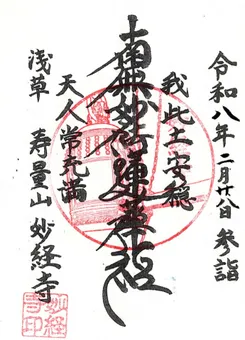 令和八年二月廿八日参詣
我此土安穏
南無妙法蓮華経
天人常充満
浅草 寿量山 妙経寺
妙経
寺印